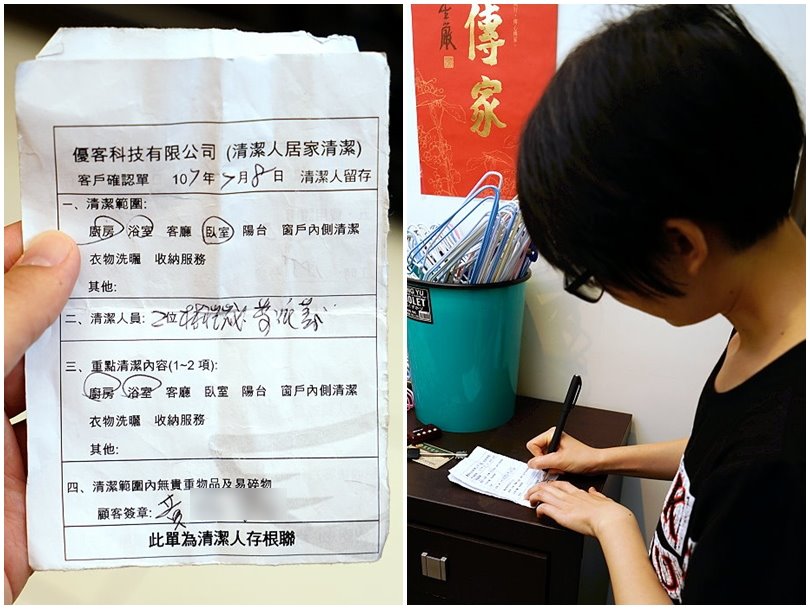 優客科技有限公司 (清潔人居家清潔)
客戶確認單 107年7月8日 清潔人留存
一、清潔範圍:
廚房 浴室 客廳 臥室 陽台 窗戶內側清潔
衣物洗曬 收納服務
其他:
二、清潔人員: 2位
三、重點清潔內容(1~2 項):
廚房 浴室 客廳 臥室 陽台 窗戶內側清潔
衣物洗曬 收納服務
其他:
四、清潔範圍內無貴重物品及易碎物
顧客簽章: 黃
此單為清潔人存根聯
傳家